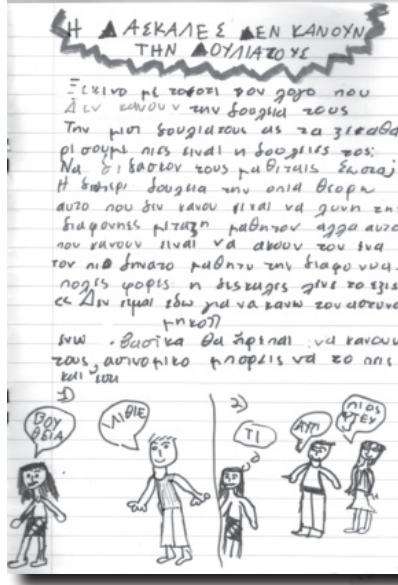 Η ΔΑΣΚΑΛΕΣ ΔΕΝ ΚΑΝΟΥΝ
ΤΗΝ ΔΟΥΛΙΑ ΤΟΥΣ
Ξεκινο με τον λογο που
Δεν κανουν την δουλεια τους
Την μιση δουλιατους ας τα ξεκαθα
ρισουμε πιες ειναι η δουλειες τος:
Να διδασκον τους μαθιταις Σωστα;
Η δευτερι δουλεια την οπια θεορη
αυτο που δεν κανου ειναι να λυνη της
διαφονιες μεταξη μαθητον αλλα αυτο
που κανουν ειναι να ακουν τον ενα
τον πιο δηνατο μαθητη την διαφονια.
πολες φορες η δεσκαλες λενε το εξις
<< Δεν ειμαι εδω για να κανω τον αστυνο
μηκο>>
ενω βασικα θα πρεπαι να κανουν
τους αστινομικο μπορεις να το πεις
και ετσι
1)
ΒΟΥ
ΘΕΙΑ
ΛΙΘΙΕ
2)
ΤΙ
ΑΥΤΙ
ΠΙΟΣ
ΦΤΕΥ